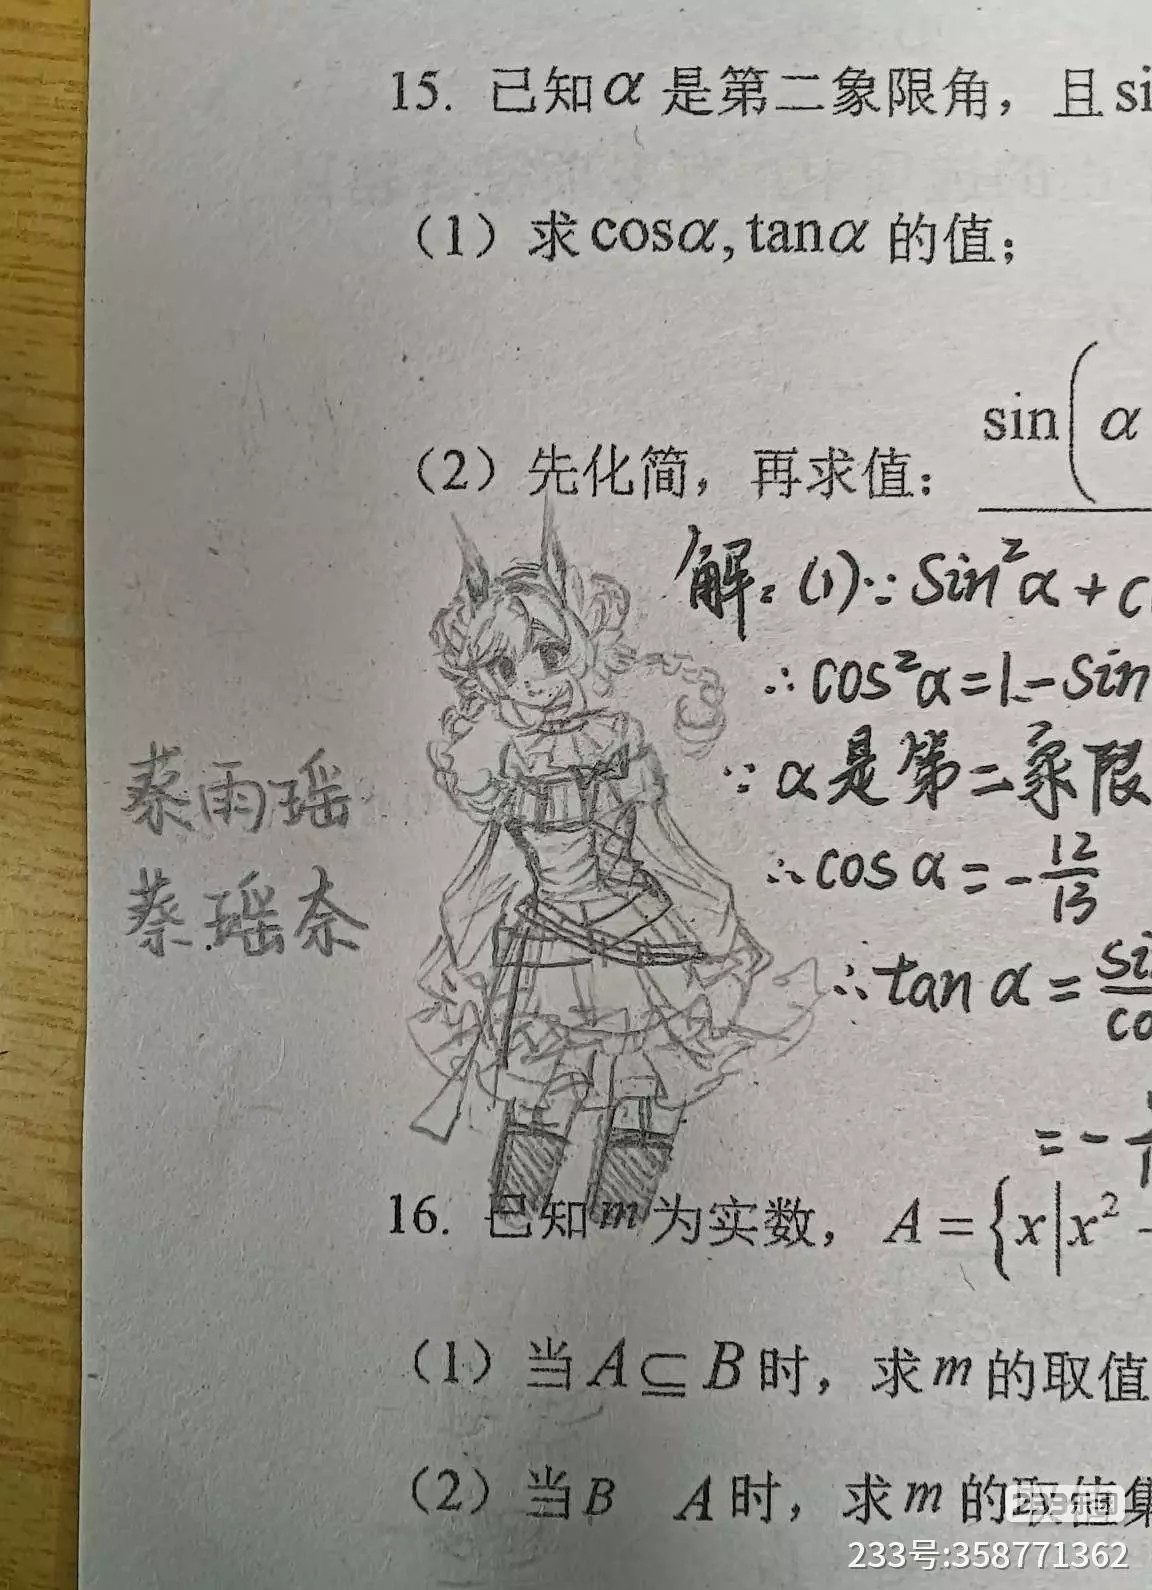 15. 已知α是第二象限角，且si
（1）求cosα,tanα的值；
sin(α
（2）先化简，再求值：
解：(1)∵Sin²α+c
∴cos²α=1-Sin
∵α是第二象限
蔡雨瑶
∴cosα=-12/13
蔡瑶奈
∴tanα=si/co
=-
16. 已知m为实数，A={x|x²-
（1）当A⊆B时，求m的取值
（2）当B A时，求m的取值集
233乐园
233号:358771362